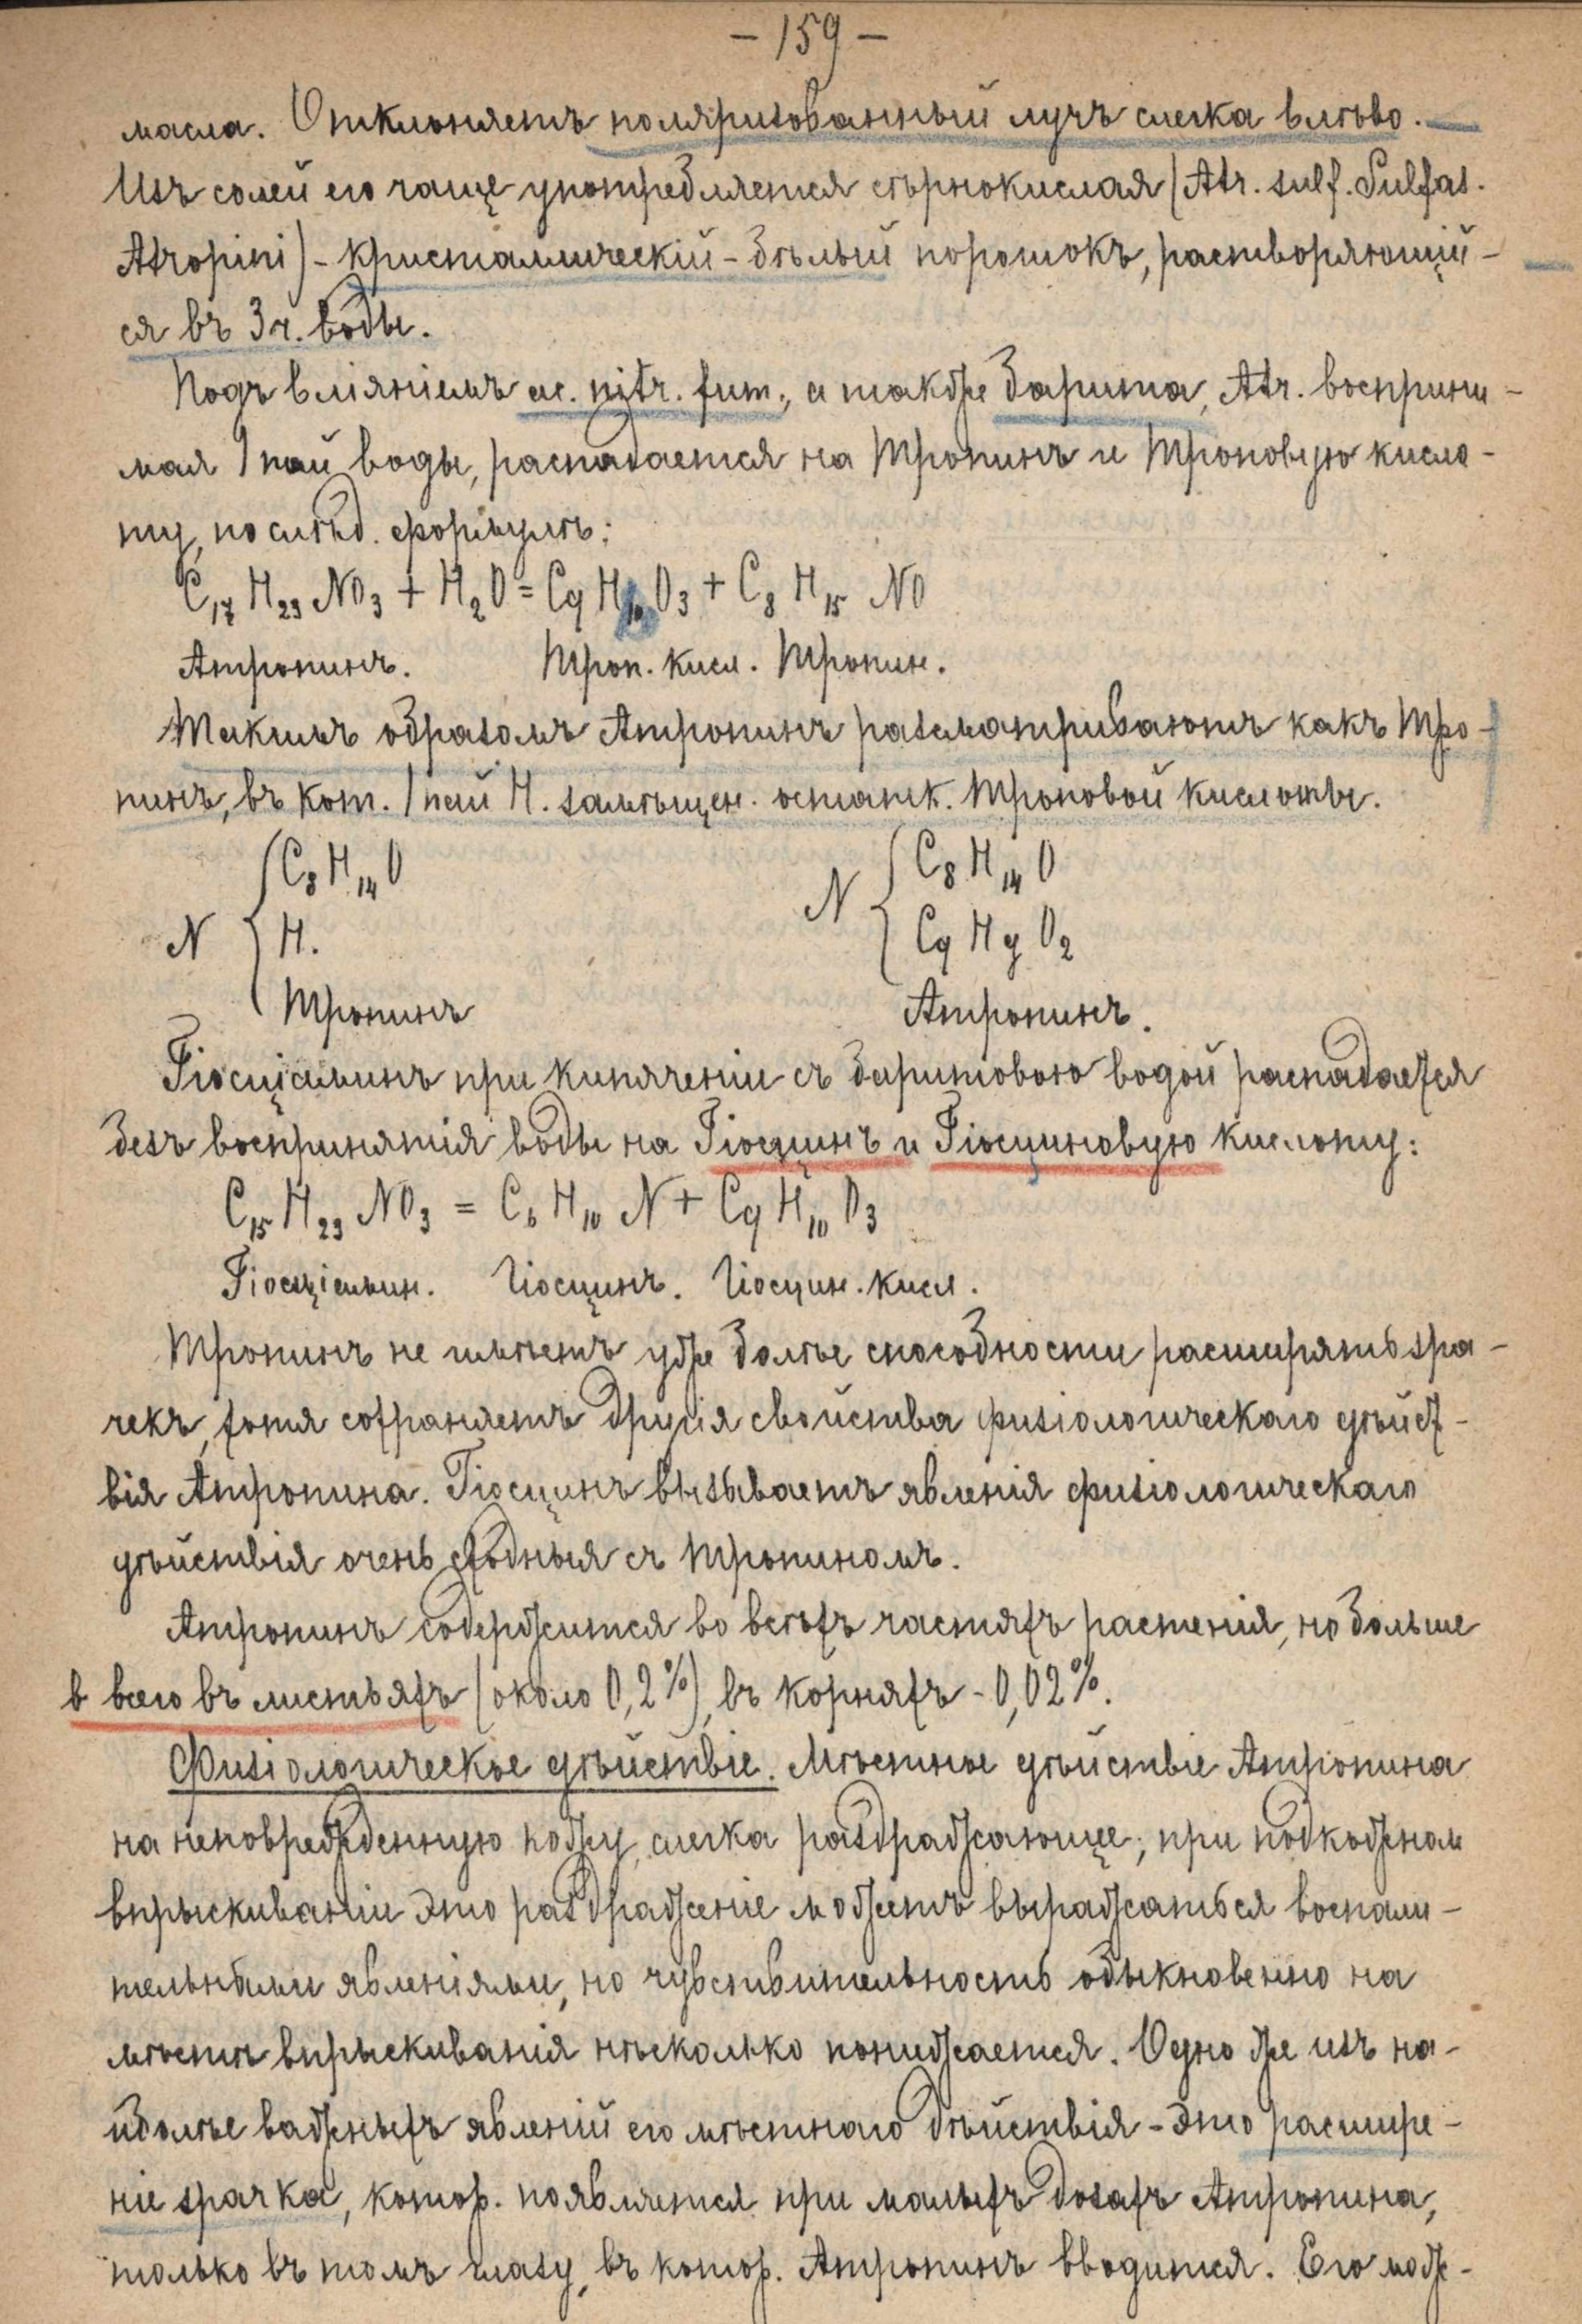 – 159 –
масла. Отклоняетъ поляризованный лучъ слегка влѣво. –
Изъ солей его чаще употребляется сѣрнокислая (Atr. sulf. Sulfas.
Atropini) – кристаллическій – бѣлый порошокъ, растворяющій–
ся въ 3 ч. воды.
Подъ вліяніемъ ac. nitr. fum., а также барита, Atr. восприни–
мая 1 пай воды, распадается на Тропинъ и Троповую кисло–
ту, по слѣд. формулѣ:
C₁₇ H₂₃ NO₃ + H₂O = C₉ H₁₀ O₃ + C₈ H₁₅ NO
Атропинъ. Троп. кисл. Тропин.
Такимъ образомъ Атропинъ разсматриваютъ какъ Тро–
пинъ, въ кот. 1 пай H. замѣщен. остатк. Троповой кислоты.
N { C₈ H₁₄ O N { C₈ H₁₄ O
H. C₉ H₉ O₂
Тропинъ Атропинъ.
Гіосціаминъ при кипяченіи съ баритовою водой распадается
безъ воспринятія воды на Гіосцинъ и Гіосциновую кислоту:
C₁₅ H₂₃ NO₃ = C₆ H₁₀ N + C₉ H₁₀ O₃
Гіосціамин. Гіосцинъ. Гіосцин. кисл.
Тропинъ не имѣетъ уже болѣе способности расширять зра–
чекъ, хотя сохраняетъ другія свойства физіологическаго дѣйст–
вія Атропина. Гіосцинъ вызываетъ явленія физіологическаго
дѣйствія очень сходныя съ Тропиномъ.
Атропинъ содержится во всѣхъ частяхъ растенія, но больше
в всего въ листьяхъ (около 0,2%), въ корняхъ – 0,02%.
Физіологическое дѣйствіе. Мѣстное дѣйствіе Атропина
на неповрежденную кожу слегка раздражающее; при подкожном
впрыскиваніи это раздраженіе можетъ выражаться воспали–
тельными явленіями, но чувствительность обыкновенно на
мѣстѣ впрыскиванія нѣсколько понижается. Одно же изъ на–
иболѣе важныхъ явленій его мѣстнаго дѣйствія – это расшире–
ніе зрачка, котор. появляется при малыхъ дозахъ Атропина,
только въ томъ глазу, въ котор. Атропинъ вводится. Его мож–